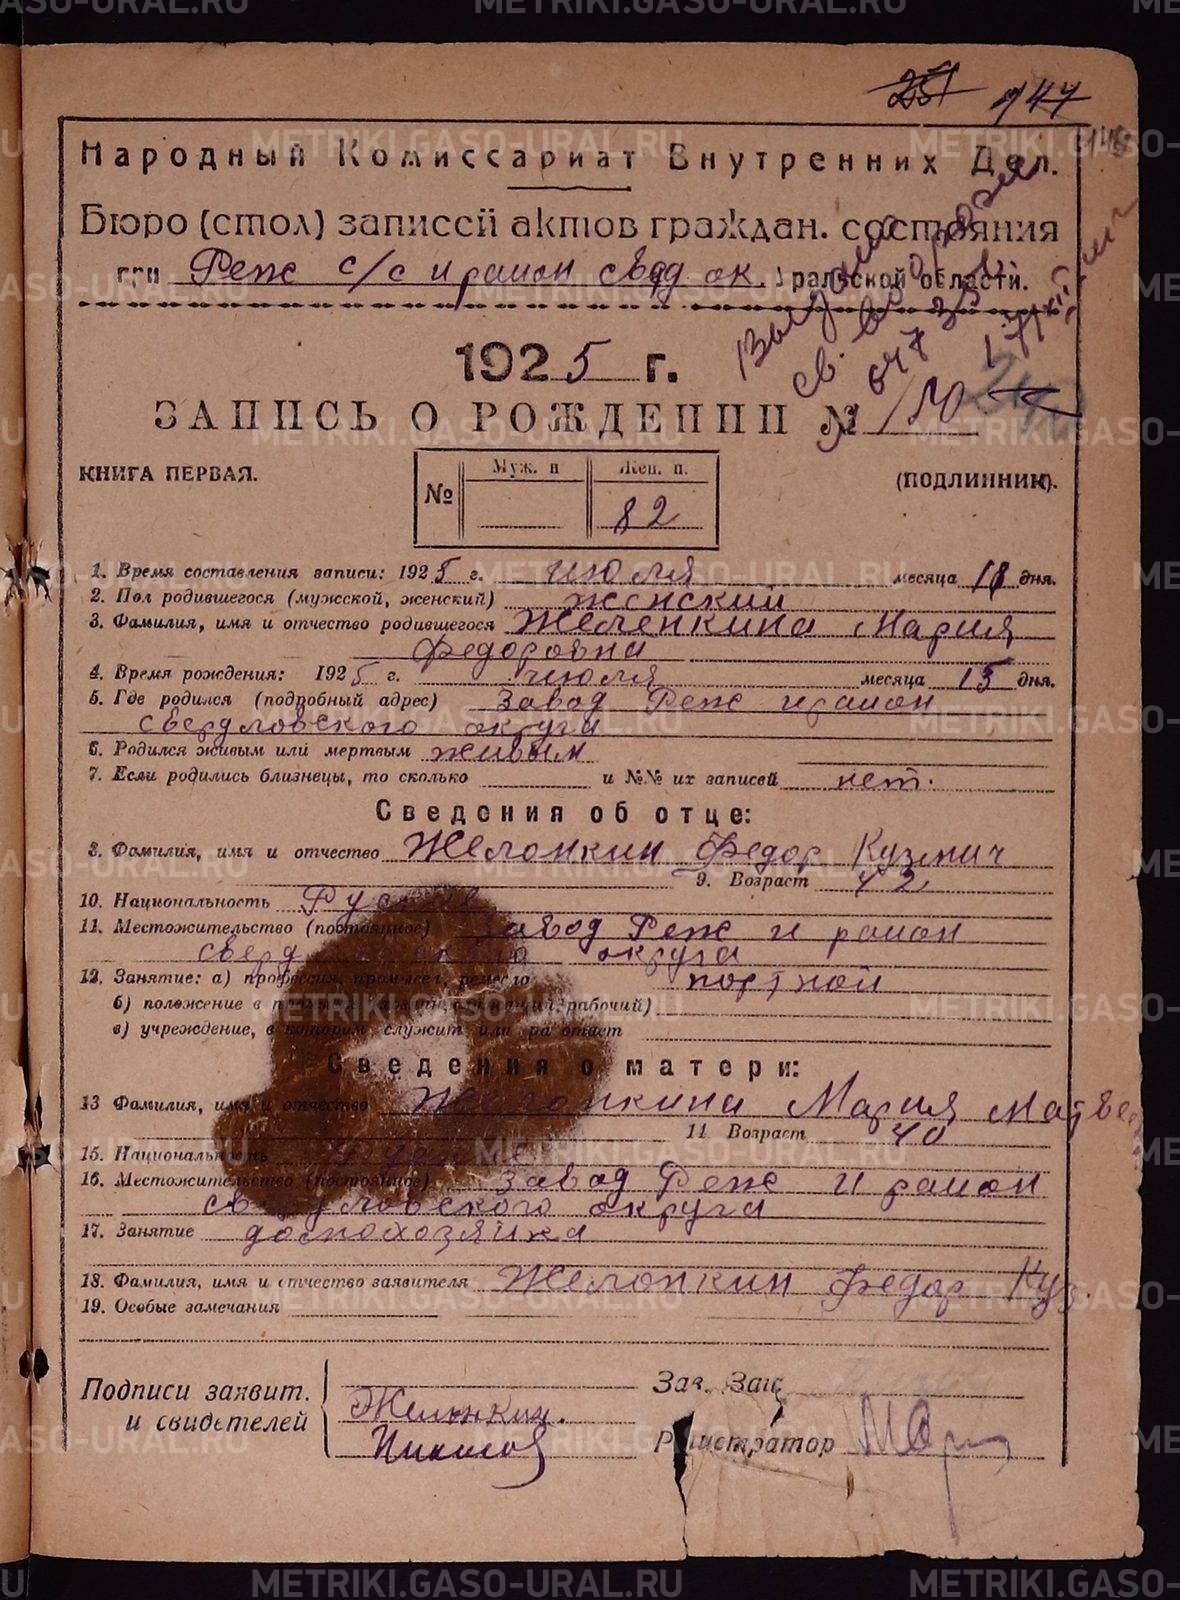 147
Народный Комиссариат Внутренних Дел.
Бюро (стол) записей актов граждан. состояния
при Реж с/с и район Свердл ок. Уральской области.
Выдано
св. во о рожд
1925 г.
ЗАПИСЬ О РОЖДЕНИИ №
КНИГА ПЕРВАЯ.
(ПОДЛИННИК).
№ Муж. п Жен. п.
82
1. Время составления записи: 1925 г. июля месяца 18 дня.
2. Пол родившегося (мужской, женский) женский
3. Фамилия, имя и отчество родившегося Желонкина Мария
Федоровна
4. Время рождения: 1925 г. июля месяца 15 дня.
5. Где родился (подробный адрес) Завод Реж и район
свердловского округа
6. Родился живым или мертвым живым
7. Если родились близнецы, то сколько и №№ их записей нет.
Сведения об отце:
8. Фамилия, имя и отчество Желонкин Федор Кузмич
9. Возраст 42
10. Национальность Русск
11. Местожительство (постоянное) Завод Реж и район
свердловского округа
12. Занятие: а) профессия, промысел, ремесло портной
б) положение в рабочий)
в) учреждение, в котором служит или работает
Сведения о матери:
13 Фамилия, имя и отчество Желонкина Мария Матве
14 Возраст 40
15. Национальность
16. Местожительство (постоянное) Завод Реж и район
свердловского округа
17. Занятие домохозяйка
18. Фамилия, имя и отчество заявителя Желонкин Федор Куз.
19. Особые замечания
Подписи заявит.
и свидетелей
Желонкин.
Зав. Загс
Регистратор
METRIKI.GASO-URAL.RU